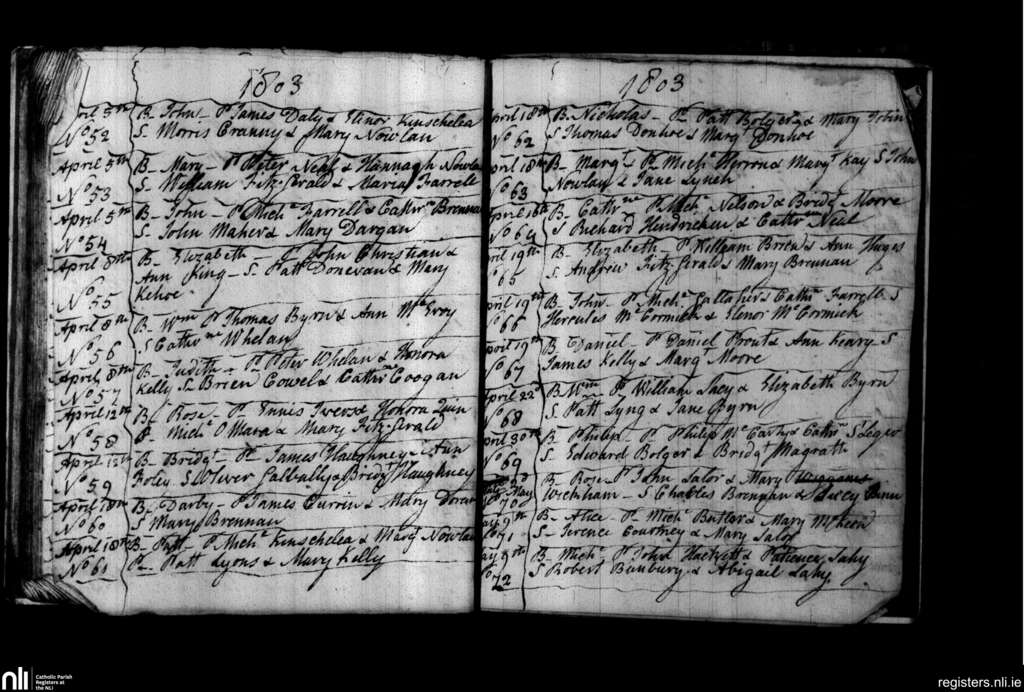 1803
April 5th B- John- Ps James Daly & Elenor Kinschelea
No 52 S. Morris Cranny & Mary Nowlan
April 5th B- Mary- Ps Peter Neal & Hannagh Nowlan
No 53 S. William Fitz-Gerald & Maria Farrell
April 5th B- John- Ps Michl Farrell & Cathrn Brennan
No 54 S. John Maher & Mary Dargan
April 8th B- Elizabeth- Ps John Christian &
Ann King- S. Patt Donevan & Mary
No 55 Kehoe
April 8th B- Wm Ps Thomas Byrn & Ann McEvoy
No 56 S Cathrne Whelan
April 8th B- Judith- Ps Peter Whelan & Honora
No 57 Kelly S. Brien Cowel & Cathrn Coogan
April 12th B- Rose- Ps Ennis Ivers & Honora Quin
No 58 Michl OMara & Mary Fitz-Gerald
April 12th B- Bridgt- Ps James Haughney & Ann
No 59 Foley S Oliver Gallbally & Bridgt Haughney
April 18th B- Darby- Ps James Currin & Mary Doran
No 60 S Mary Brennan
April 18th B- Patt- Ps Michl Kinschelea & Margt Nowlan
No 61 Patt Lyons & Mary Kelly
1803
April 18th B- Nicholas- Ps Patt Bolger & Mary John
No 62 S Thomas Donhoe & Margt Donhoe
April 18th B- Margt Ps Michl Herron & Margt Kay S John
No 63 Nowlan & Jane Lynch
April 18th B- Cathrne Ps Michl Nelson & Bridgt Moore
No 64 S Richard Hendricken & Cathrne Neil
April 19th B- Elizabeth- Ps William Brien & Ann Hayes
65 S. Andrew Fitz-Gerald & Mary Brennan
April 19th B- John- Ps Michl Gallaher & Cathrn Farrell- S
No 66 Hercules McCormick & Elenor McCormick
April 19th B- Daniel- Ps Daniel Prout & Ann Leary- S
No 67 James Kelly & Margt Moore
April 22d B Wm Ps William Lacy & Elizabeth Byrn
No 68 S. Patt Lyng & Jane Byrn
April 30th B- Philip- Ps Philip McCarty & Cathrn StLeger
No 69 S. Edward Bolger & Bridgt Magrath
May B- Rose- Ps John Salor & Mary
70 Wrenham- S Charles Brennan &
May 9th B- Alice- Ps Michl Butler & Mary McKeen
No 71 S- Terence Courtney & Mary Salor
May 9th B- Michl Ps John Hackett & Patience Lahy
No 72 S Robert Bunbury & Abigail Lahy
nli Catholic Parish
Registers at
the NLI
registers.nli.ie